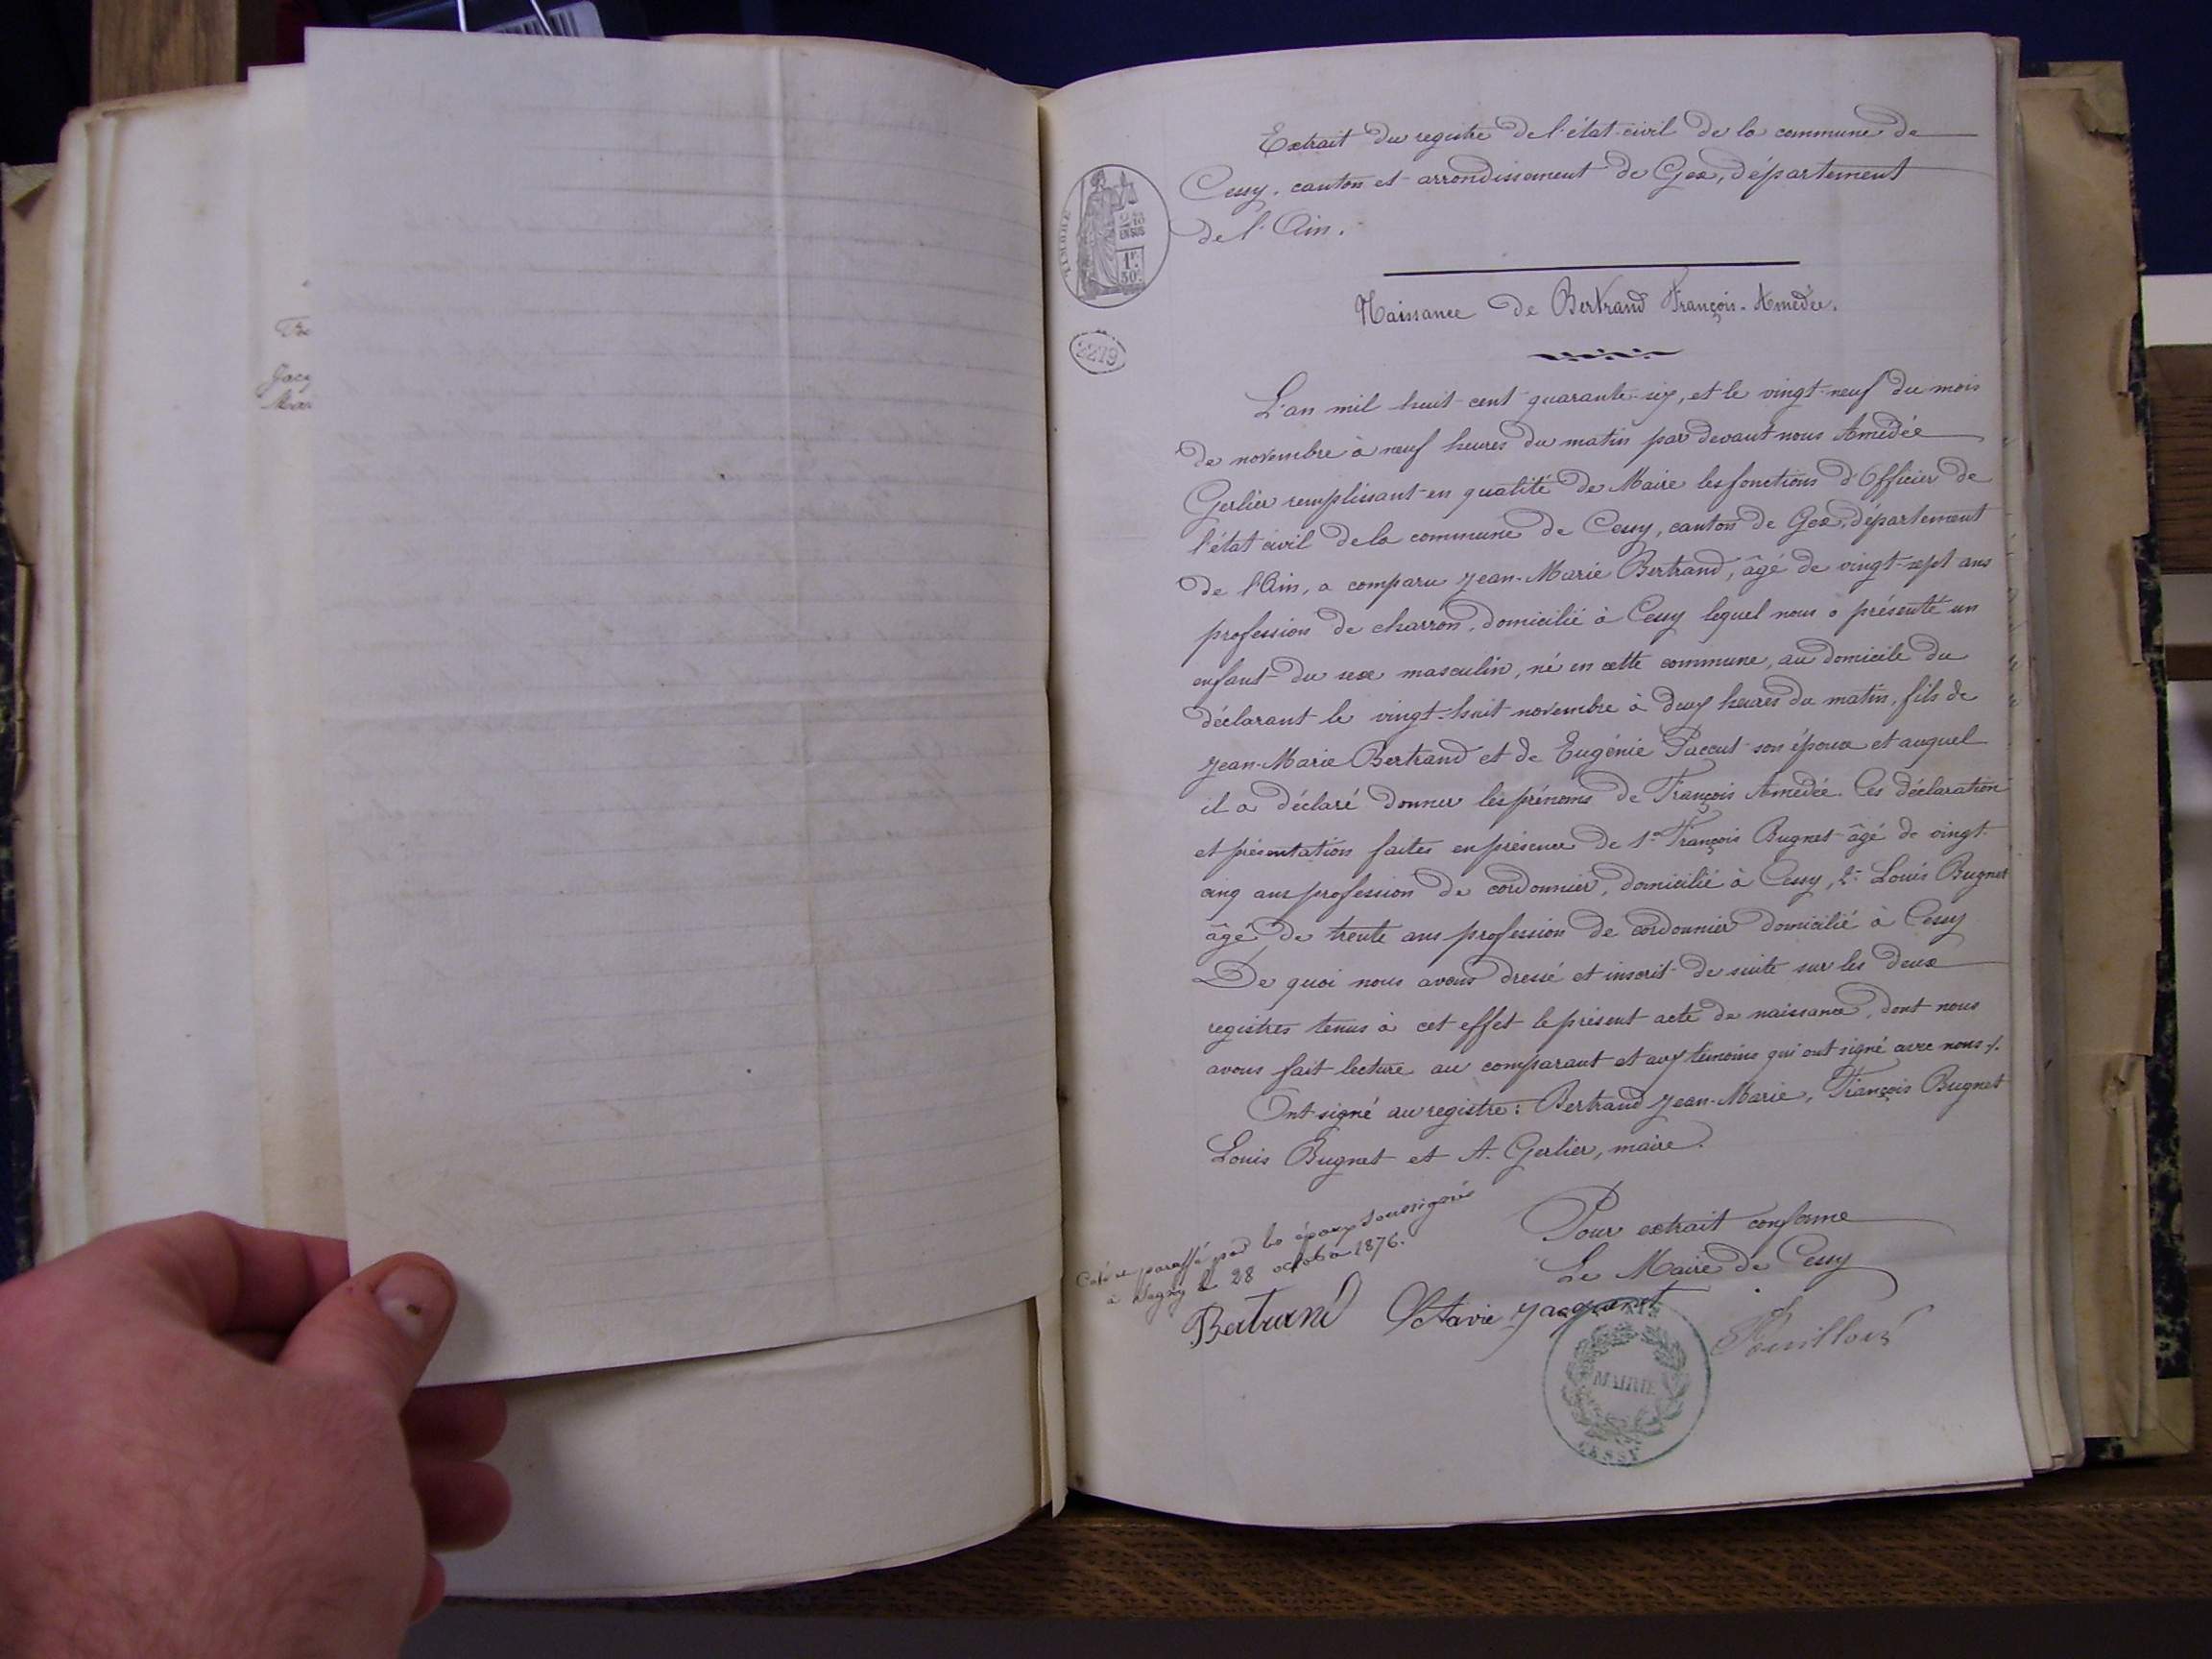 Tre
Jacq
Mar
Extrait du registre de l'état-civil de la commune de
Cessy, canton et arrondissement de Gex, département
de l'Ain.
TIMBRE
2/10
EN SUS
1F.
50c.
2279
Naissance de Bertrand François-Amédée.
L'an mil huit cent quarante-six, et le vingt-neuf du mois
de novembre à neuf heures du matin par devant nous Amédée
Gerlier remplissant en qualité de Maire les fonctions d'Officier de
l'état civil de la commune de Cessy, canton de Gex, département
de l'Ain, a comparu Jean-Marie Bertrand, âgé de vingt-sept ans
profession de charron, domicilié à Cessy lequel nous a présenté un
enfant du sexe masculin, né en cette commune, au domicile du
déclarant le vingt-huit novembre à deux heures du matin, fils de
Jean-Marie Bertrand et de Eugénie Paccut son épouse et auquel
il a déclaré donner les prénoms de François Amédée. Ces déclaration
et présentation faites en présence de 1° François Bugnet âgé de vingt-
cinq ans profession de cordonnier, domicilié à Cessy, 2° Louis Bugnet
âgé de trente ans profession de cordonnier domicilié à Cessy
De quoi nous avons dressé et inscrit de suite sur les deux
registres tenus à cet effet le présent acte de naissance, dont nous
avons fait lecture au comparant et aux témoins qui ont signé avec nous ./.
Ont signé au registre : Bertrand Jean-Marie, François Bugnet
Louis Bugnet et A. Gerlier, maire.
Coté et paraffé par les époux soussignés
à le 28 octobre 1876.
Pour extrait conforme
Le Maire de Cessy
Bertrand Octavie Jacquenet
MAIRIE
CESSY